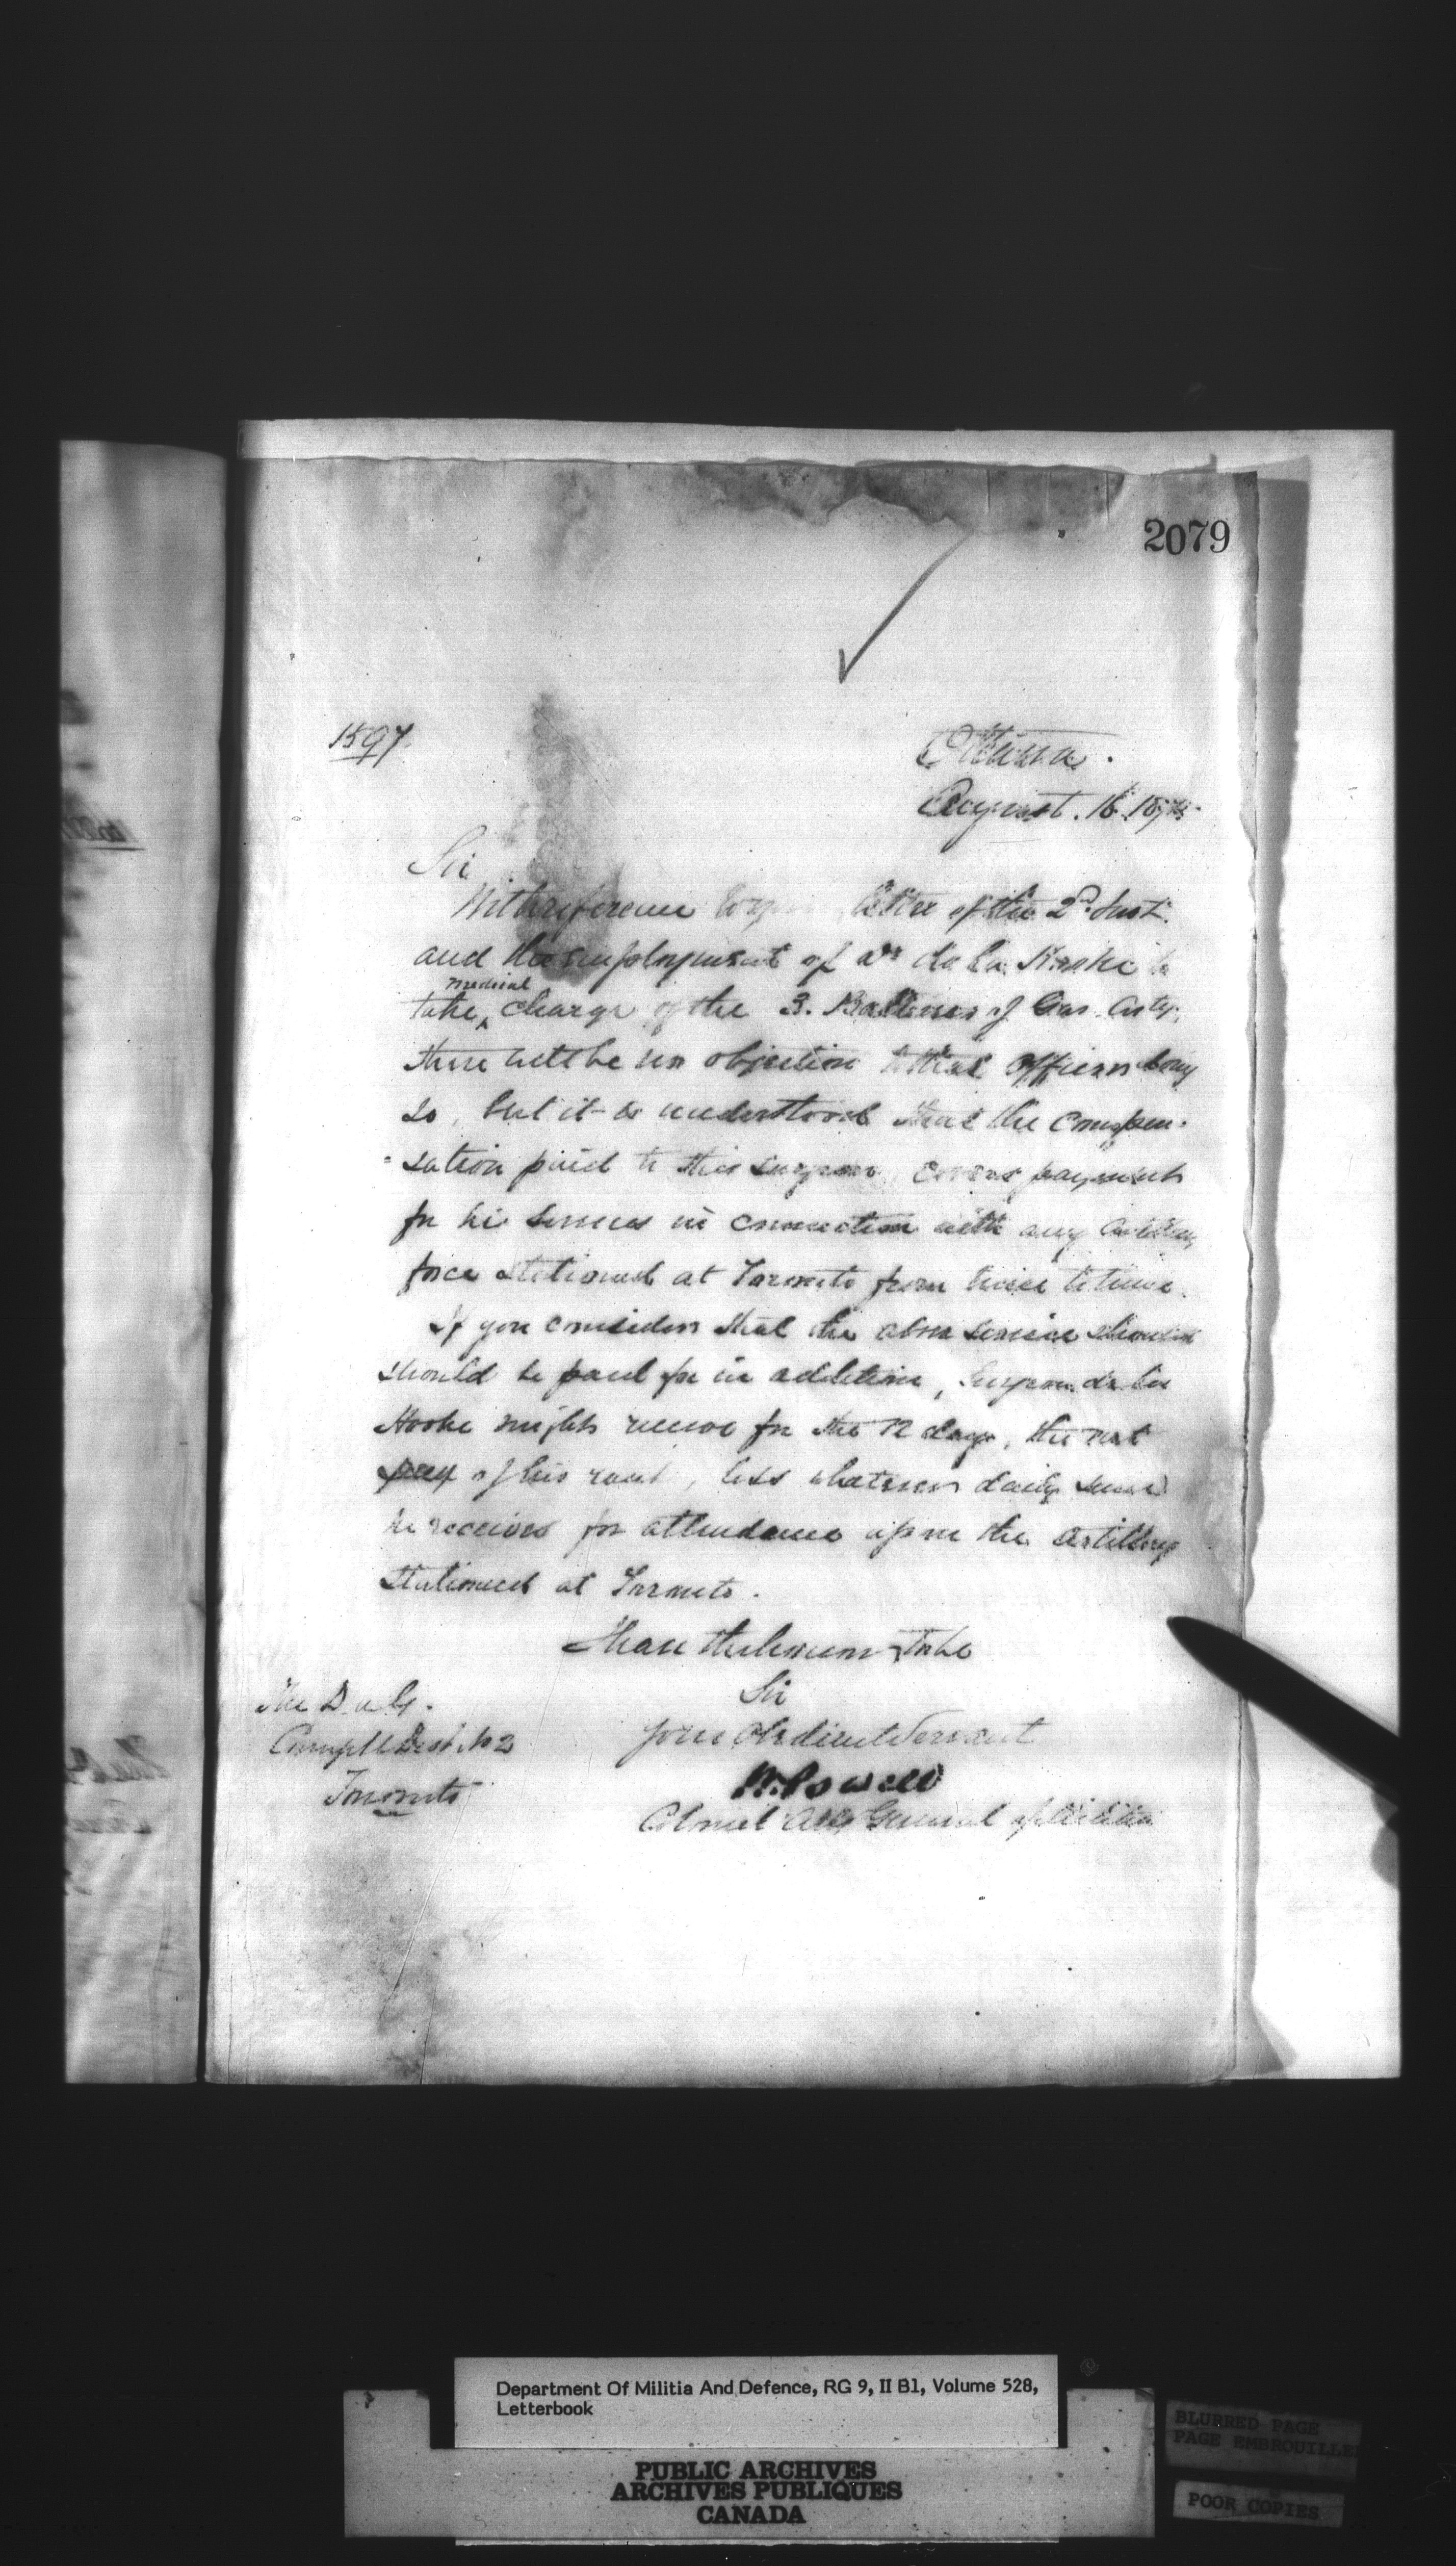 2079
1597.
Ottawa.
August. 16. 187
Sir
With reference to your letter of the 2nd Inst.
and the employment of Dr de la Hooke to
take medical charge of the 3. Batteries of Gar. Arty.
there will be no objection to that Officer doing
so, but it is understood that the compen-
-sation paid to this surgeon, covers payment
for his services in connection with any Artillery
force stationed at Toronto from time to time.
If you consider that the above service should
should be paid for in addition, Surgeon de la
Hooke might receive for the 12 days, the net
pay of his rank, less whatever daily sum
he receives for attendance upon the Artillery
stationed at Toronto.
I have the honour to be
Sir
Your Obedient Servant
W. Powell
Colonel Adj General of Militia
The D. A. G.
Commg M Dist. No 2
Toronto
Department Of Militia And Defence, RG 9, II B1, Volume 528,
Letterbook
PUBLIC ARCHIVES
ARCHIVES PUBLIQUES
CANADA
BLURRED PAGE
PAGE EMBROUILLE
POOR COPIES